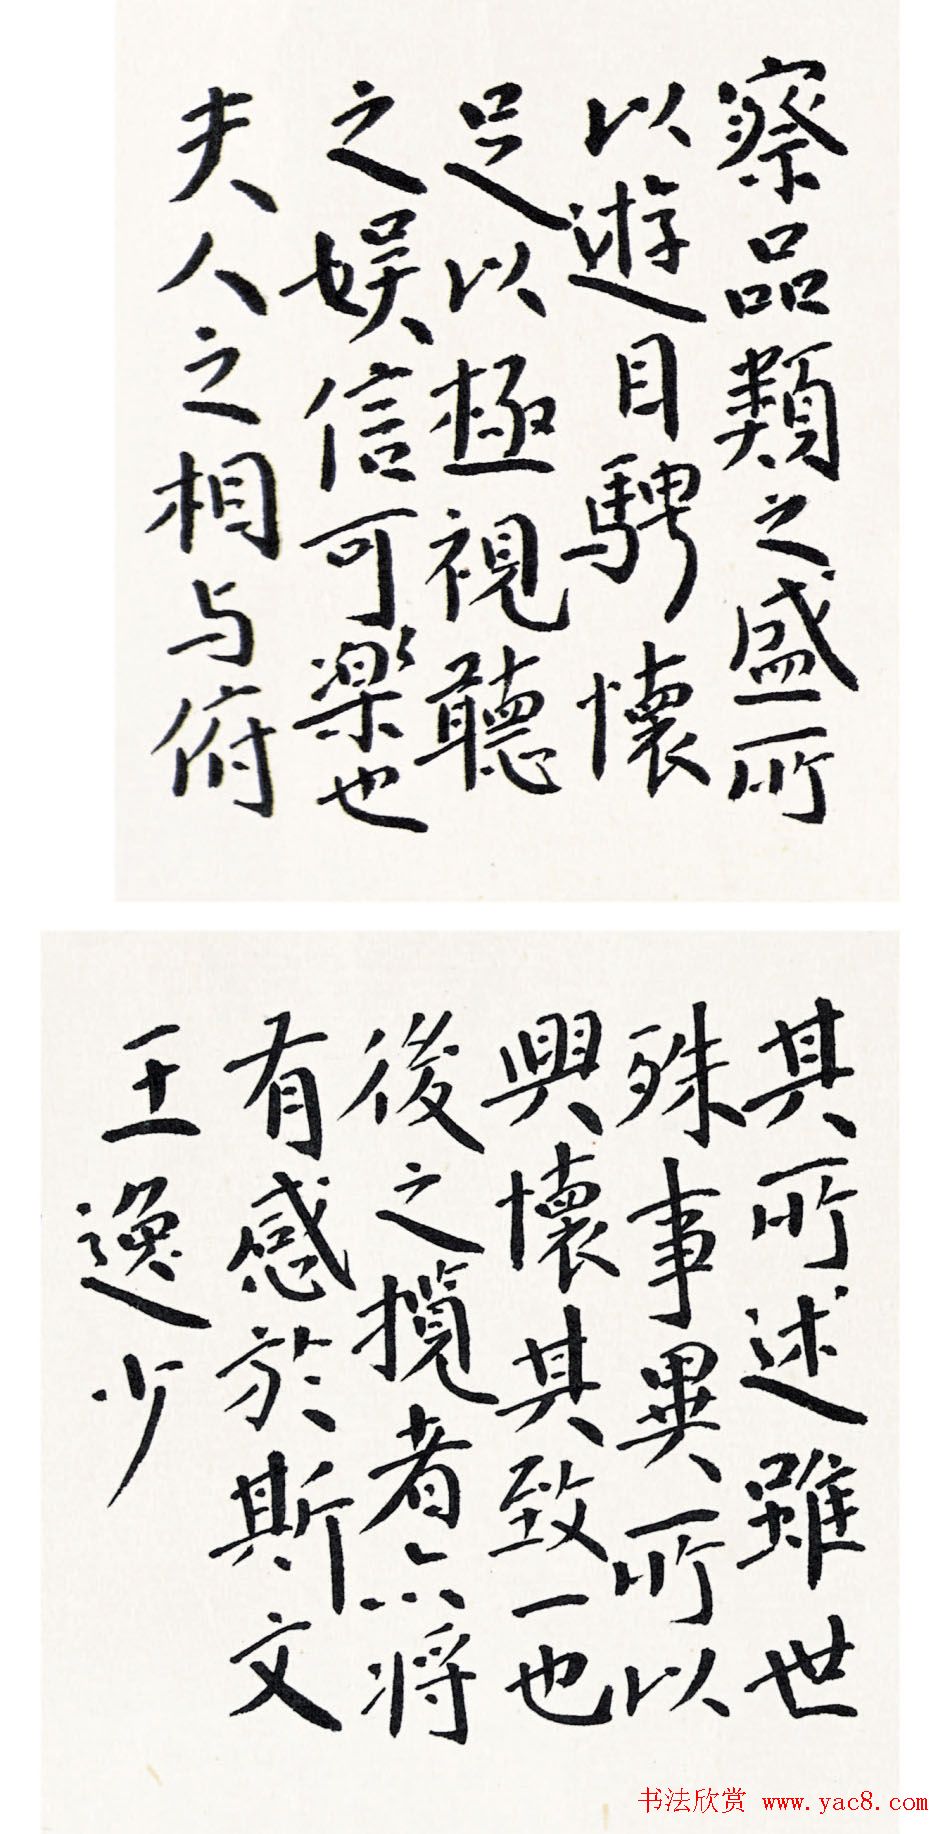 察品類之盛所
以遊目騁懷
足以極視聽
之娱信可樂也
夫人之相与俯
其所述雖世
殊事異所以
興懷其致一也
後之攬者亦将
有感於斯文
王逸少
书法欣赏 www.yac8.com